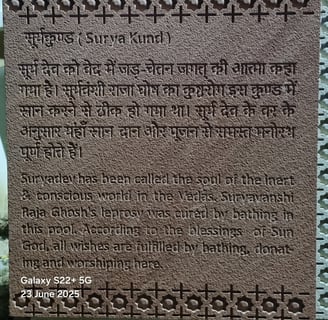 सूर्यकुण्ड ( Surya Kund )
सूर्य देव को वेद में जड़-चेतन जगत् की आत्मा कहा
गया है। सूर्यवंशी राजा घोष का कुष्ठरोग इस कुण्ड में
स्नान करने से ठीक हो गया था। सूर्य देव के वर के
अनुसार यहाँ स्नान दान और पूजन से समस्त मनोरथ
पूर्ण होते हैं।
Suryadev has been called the soul of the inert
& conscious world in the Vedas. Suryavanshi
Raja Ghosh's leprosy was cured by bathing in
this pool. According to the blessings of Sun
God, all wishes are fulfilled by bathing, donat-
ing and worshiping here.
Galaxy S22+ 5G
23 June 2025